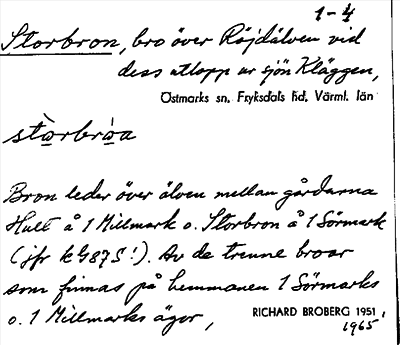 1-4
Storbron, bro över Röjdälven vid
dess utlopp ur sjön Kläggen,
Östmarks sn. Fryksdals hd. Värml. län
stὼrbrὼa
Bron leder över älven mellan gårdarna
Hult å 1 Millmark o. Storbron å 1 Sörmark
(jfr kG87S!). Av de trenne broar
som finnas på hemmanen 1 Sörmarks
o. 1 Millmarks ägor,
RICHARD BROBERG 1951,
1965